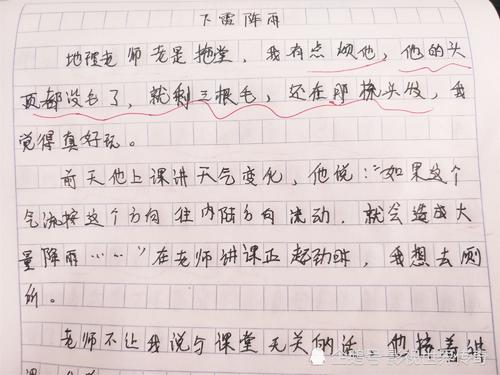 下雷阵雨
地理老师老是拖堂，我有点烦他，他的头
顶都没毛了，就剩三根毛，还在那梳头发，我
觉得真好玩。
前天他上课讲天气变化，他说："如果这个
气流按这个方向往内陆方向流动，就会造成大
量降雨……"在老师讲课正起劲时，我想去厕
所。
老师不让我说与课堂无关的话，他接着讲